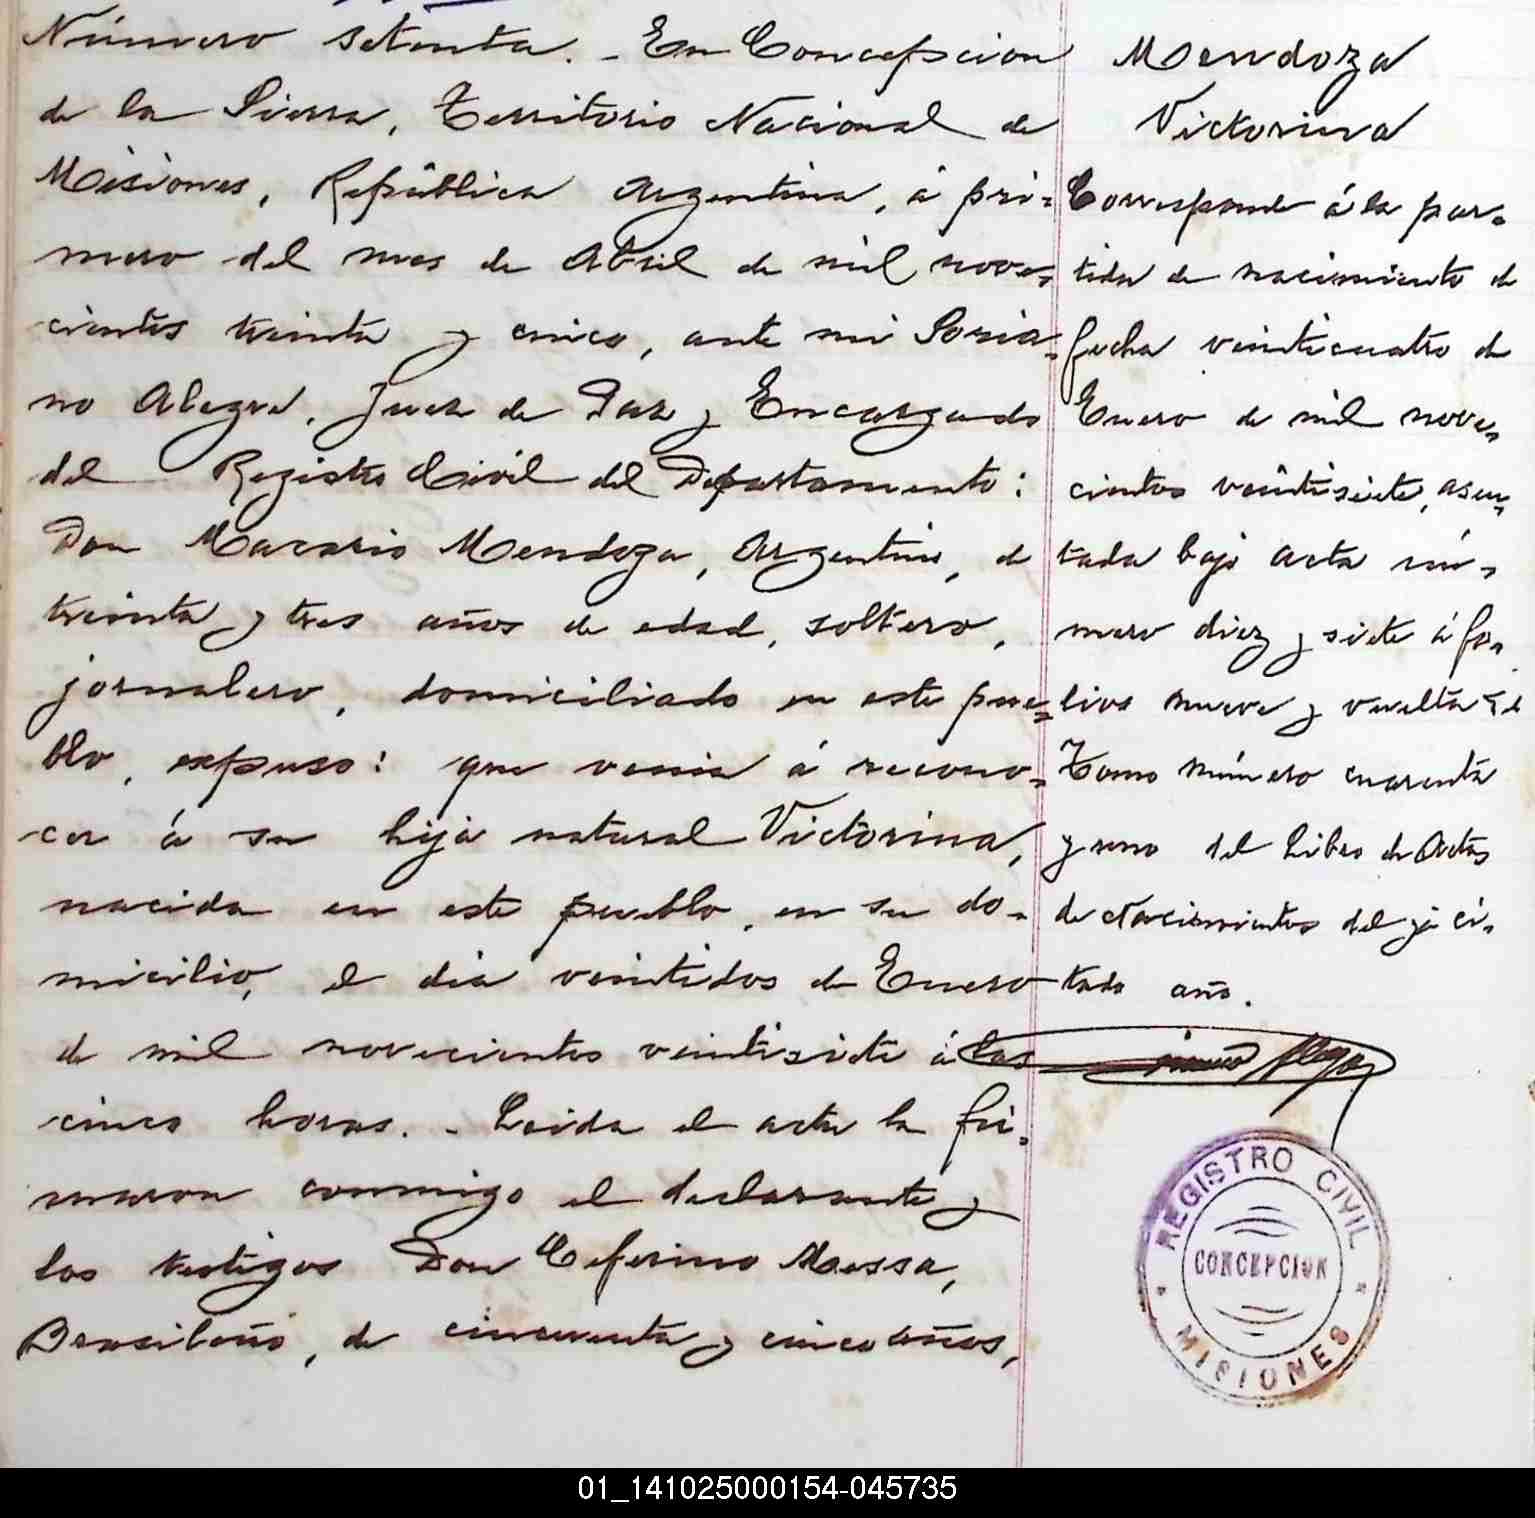 Número setenta. - En Concepcion
de la Sierra, Territorio Nacional de
Misiones, República Argentina, á pri-
mero del mes de Abril de mil nove-
cientos treinta y cinco, ante mi Soria-
no Alegre, Juez de Paz y Encargado
del Registro Civil del Departamento:
Don Macario Mendoza, Argentino, de
treinta y tres años de edad, soltero,
jornalero, domiciliado en este pue-
blo, expuso: que venia á recono-
cer á su hija natural Victorina,
nacida en este pueblo, en su do-
micilio, el dia veintidos de Enero
de mil novecientos veintisiete á las
cinco horas. - Leida el acta la fir-
maron conmigo el declarante y
los testigos Don Ceferino Messa,
Brasileño, de cincuenta y cinco años,
Mendoza
Victorina
Corresponde á la par-
tida de nacimiento de
fecha veinticuatro de
Enero de mil nove-
cientos veintisiete, asen-
tada bajo acta nú-
mero diez y siete á fo-
lios nueve y vuelta del
Tomo número cuarenta
y uno del Libro de Actas
de Nacimientos del ya ci-
tado año.
REGISTRO CIVIL
CONCEPCION
MISIONES
01_141025000154-045735